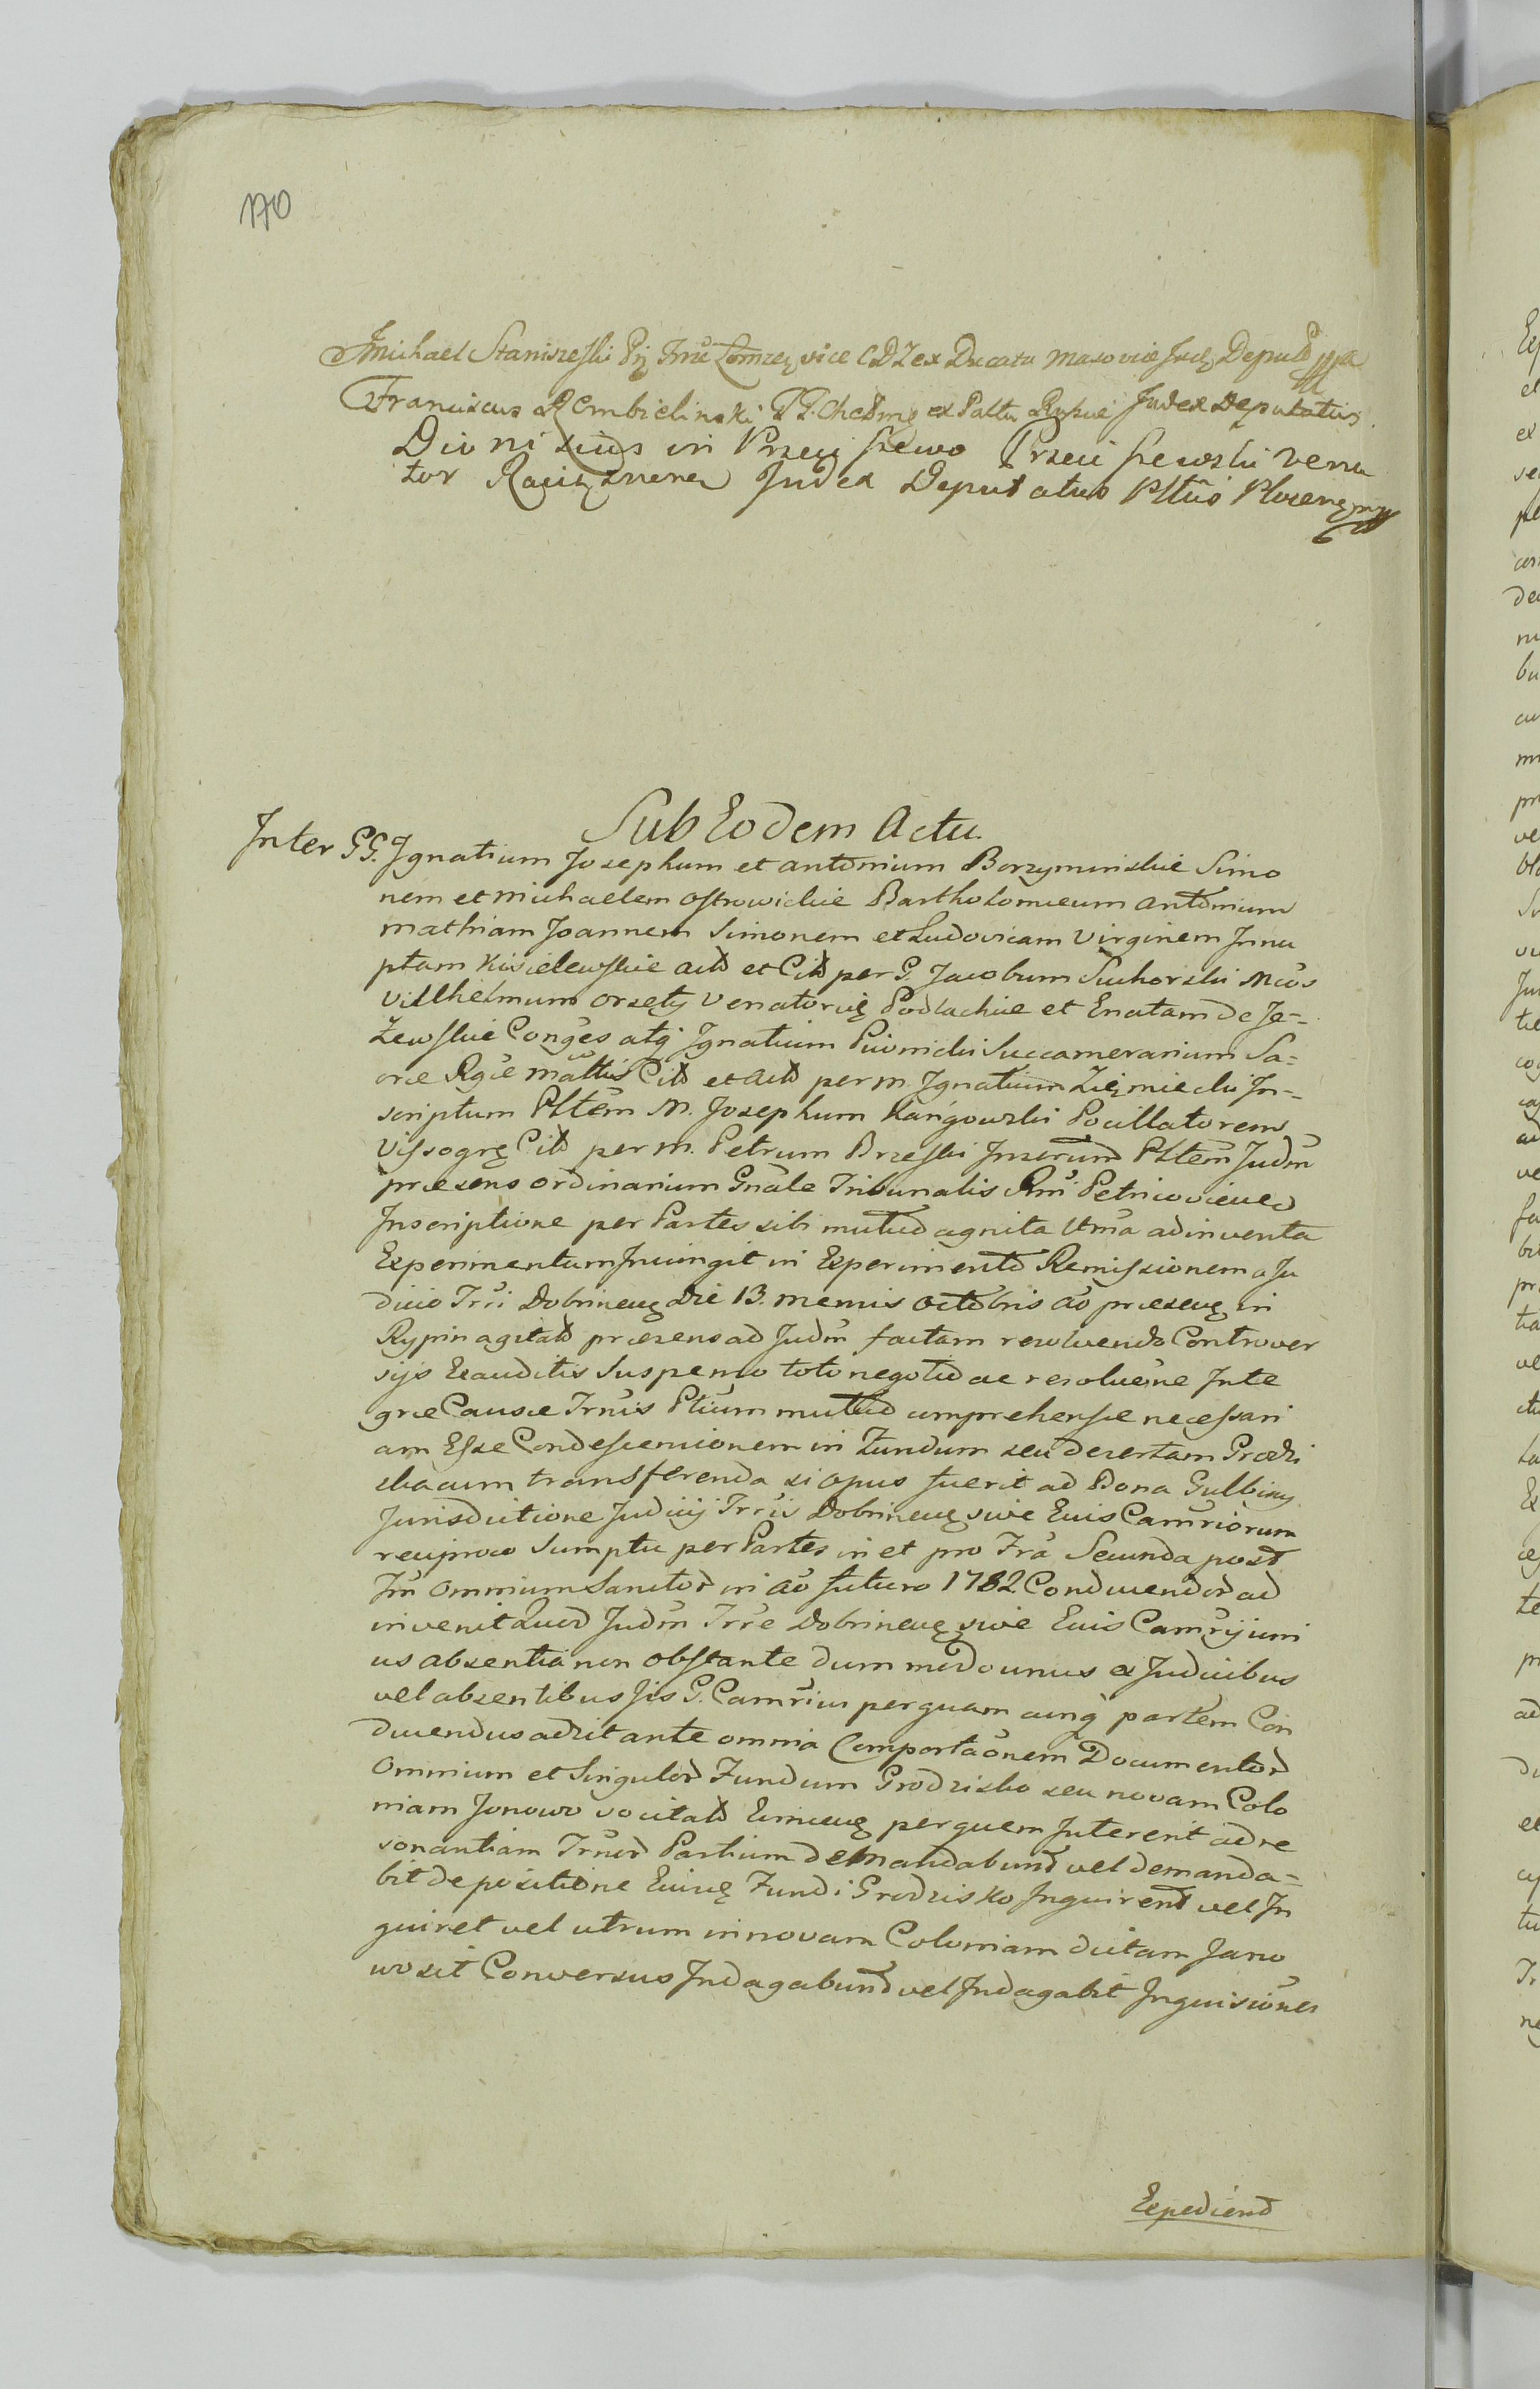 170
Michael Staniszeski Pij Trrae Łomzeę vice CDZ ex Ducatu Masoviae Judę Deput
Franciscus Rembielinski TT. Chełmę ex Pałtu Judex Deputatus
Dionisius in Przeciszewo Przeciszewski Vena
tor Raciązzneneę Judex Deputatus Pltũs Plocenę mp
Sub Eodem Actu
Inter GG. Ignatium Josephum et Antonium Borzyminskie Simo
nem et Michaelem Ostrowickie Bartholomeum Antonium
Mathiam Joannem Simonem et Ludovicam Virginem Innu
ptam Kisielewskie act et Cit per G. Jacobum Suchorski Mcos
Villhelmum Orsety Venatorię Podlachiae et Enatam de Je-
żewskie Conges atq Ignatium Piwnicki Succamerarium Sa=
crae Rgiae Mattis Cit et Act per M. Ignatium Ziemiecki In-
scriptum Pltem M. Josephum Kangowski Pocillatorem
Vissogrę Cit per M. Petrum Brzeski Inserund Pltem Judm
praesens ordinarium Gnale Tribunalis Rni Petricoviense
Inscriptione per Partes sibi mutuo agnita Utma adinventa
Experimentum Iniungit in Experimento Remissionem a Ju
dicio Trri Dobrineneę Die 13. mensis Octobris ao praeseneę in
Rypin agitato praesens ad Judm factam resolvendo Controver
sijs Exauditis Suspenso toto negotio ac resoluone Inte
grae Causae Trnis Ptium mutuo comprehensae necessari
am Esse Condescensionem in Fundum seu desertam Grodzi
skacum transferenda si opus fuerit ad Bona Gulbiny
Jurisdictione Judicij Trris Dobrineneę sive Euis Camrriorum
reciproco Sumptu per Partes in et pro Fra Secunda post
Fm Omnium Sanctor in Ao futuro 1782 Conducendor ad
invenit Quod Judm Trre Dobrineneę sive Euis Camrrij uni
us absentia non obstante dum modo unus ex Judicibus
vel absentibus Iis G. Camrius per quam cunq partem Con
ducendus adzit ante omnia Comportaonem Documentor
Omnium et Singulor Fundum Grodzisko seu novam Colo
niam Jonowo vocitato Eimeneę per quem Intererit ad re
sonantiam Trnior Partium demandabunt vel demanda=
bit de positione Euisę Fundi Grodzisko Inquirent vel In
quiret vel utrum in novam Coloniam dictam Jano
wo sit Conversus Indagabunt vel Indagabit Inquisiones
Expediend